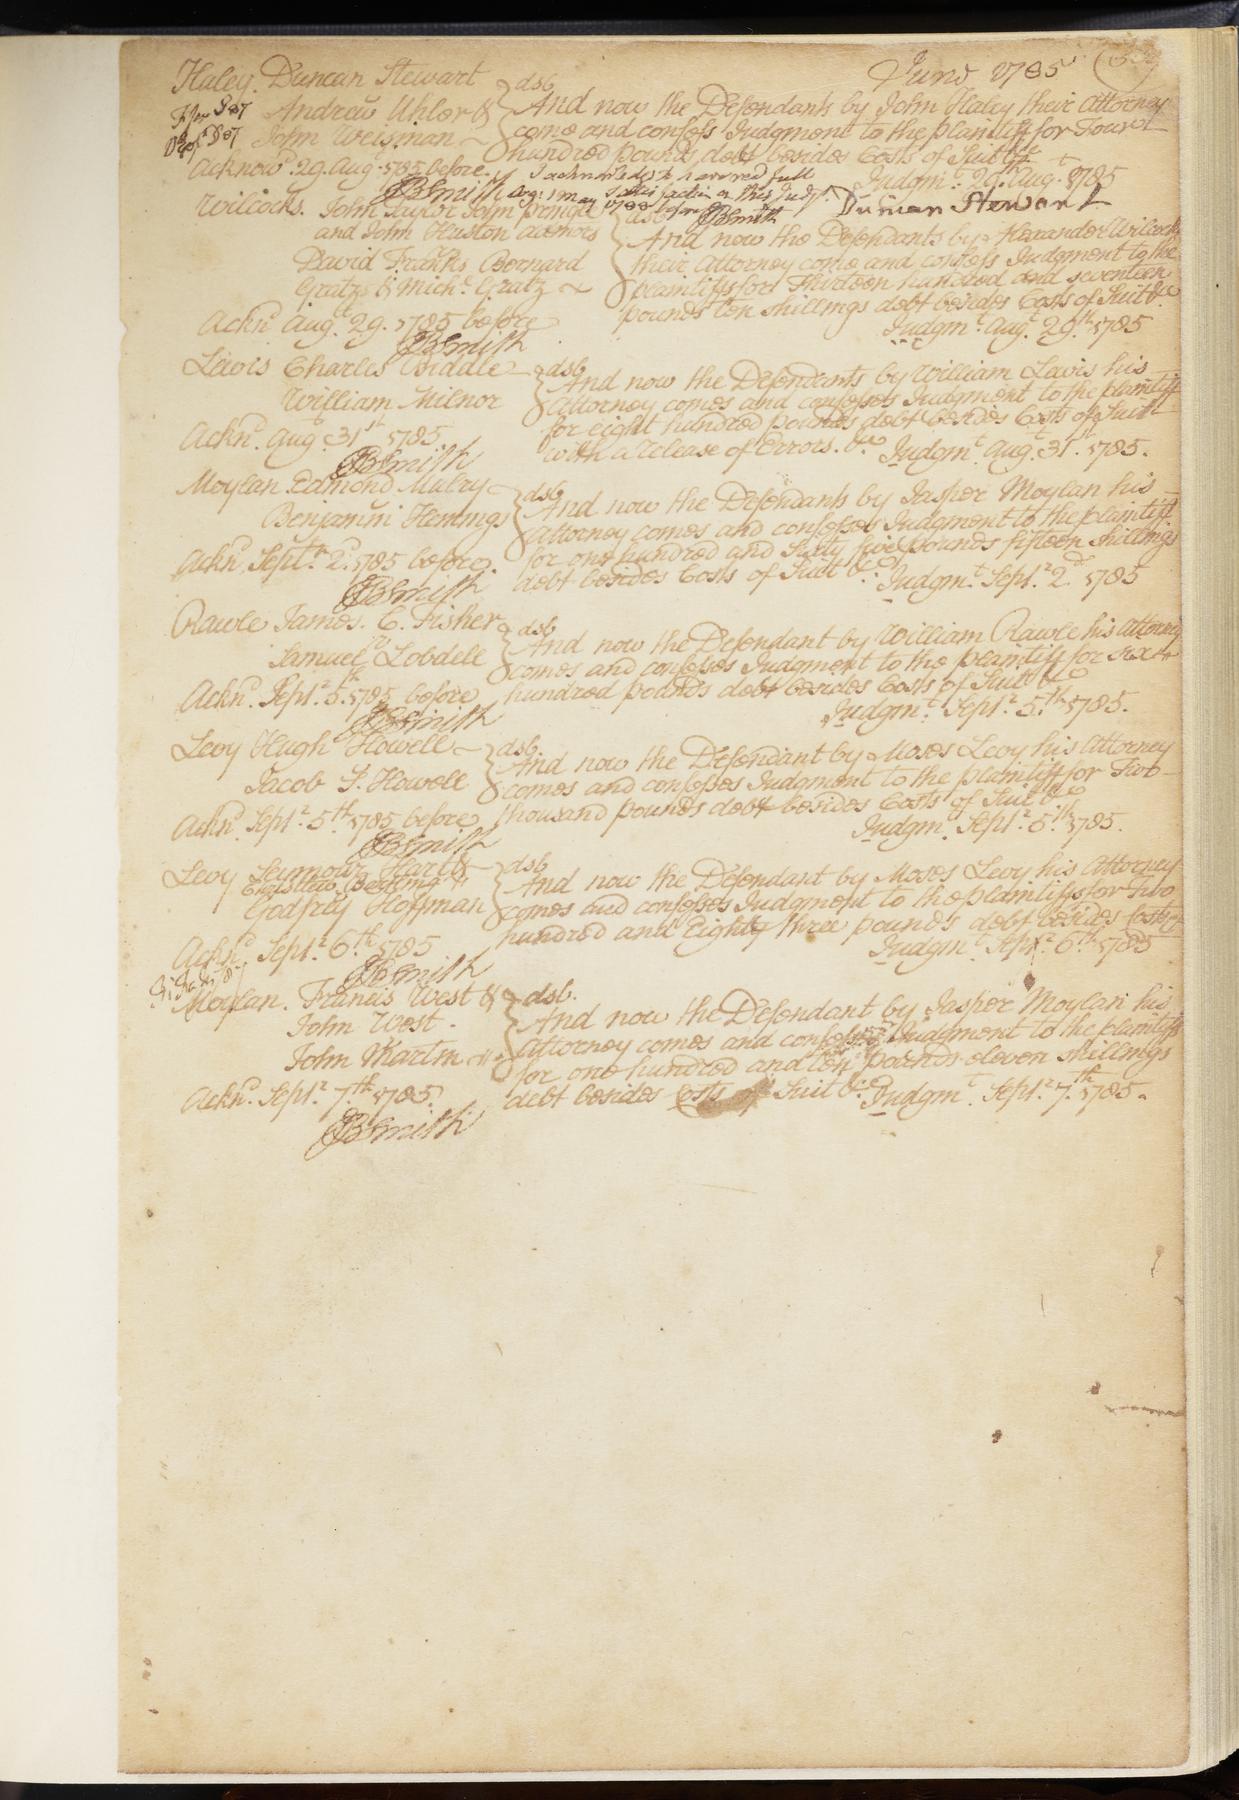 June 1785
Haley. Duncan Stewart
Andrew Uhler &
John Weisman
dsb
And now the Defendants by John Haley their Attorney
come and confess Judgment to the plaintiff for Four
hundred pounds debt besides Costs of Suit &c
Judgmt. 29. Augt. 1785
Acknowd. 29. Augt. 1785 before.
JBSmith
I acknowledge to have recd full
satisfaction on this Judgt.
1 May 1788 before JBSmith
Duncan Stewart
Wilcocks. John Taylor John Pringle
and John Huston
David Franks Bernard
Gratz & Michl. Gratz
dsb
And now the Defendants by Alexander Wilcocks
their Attorney come and confess Judgment to the
plaintiffs for Thirteen hundred and seventeen
pounds ten shillings debt besides Costs of Suit &c
Judgmt. Augt. 29th. 1785
Acknd Augt. 29. 1785 before
JBSmith
Lewis Charles Biddle
William Milnor
dsb
And now the Defendants by William Lewis his
Attorney comes and confesses Judgment to the plaintiff
for eight hundred pounds debt besides Costs of Suit
with a release of Errors. &c. Judgmt. Augt. 31st. 1785.
Acknd. Augt 31st 1785.
JBSmith
Moylan Edmond Mulry
Benjamin Hemmings
dsb
And now the Defendants by Jasper Moylan his
Attorney comes and confesses Judgment to the plaintiff
for one hundred and Sixty five pounds fifteen shillings
debt besides Costs of Suit &c. Judgmt. Septr. 2d. 1785
Acknd. Septr. 2d. 1785 before.
JBSmith
Rawle James. C. Fisher
Samuel Lobdell
dsb
And now the Defendant by William Rawle his Attorney
comes and confesses Judgment to the plaintiff for six
hundred pounds debt besides Costs of Suit &c
Judgmt. Septr. 5.th 1785.
Acknd. Septr. 5.th 1785 before
JBSmith
Levy Hugh Howell
Jacob S. Howell
dsb.
And now the Defendant by Moses Levy his Attorney
comes and confesses Judgment to the plaintiff for Two
thousand pounds debt besides Costs of Suit &c
Judgm. Septr. 5.th 1785.
Acknd. Septr. 5th. 1785 before
JBSmith
Levy Seymour Hart &
Godfrey Hoffman
dsb
And now the Defendant by Moses Levy his Attorney
comes and confesses Judgment to the plaintiffs for Two
hundred and Eighty three pounds debt besides Costs
Judgmt Septr. 6th. 1785
Acknd. Septr. 6th. 1785
JBSmith
Moylan. Francis West &
John West.
John Martin
dsb.
And now the Defendant by Jasper Moylan his
Attorney comes and confesses Judgment to the plaintiffs
for one hundred and ten pounds eleven shillings
debt besides Costs of Suit &c. Judgmt. Septr. 7.th 1785.
Acknd. Septr. 7.th 1785.
JBSmith